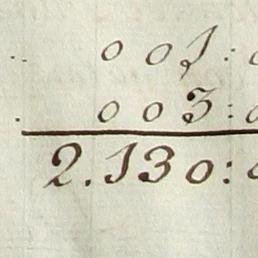 .. 0 0 1 :
. 0 0 3 :
2.130 :